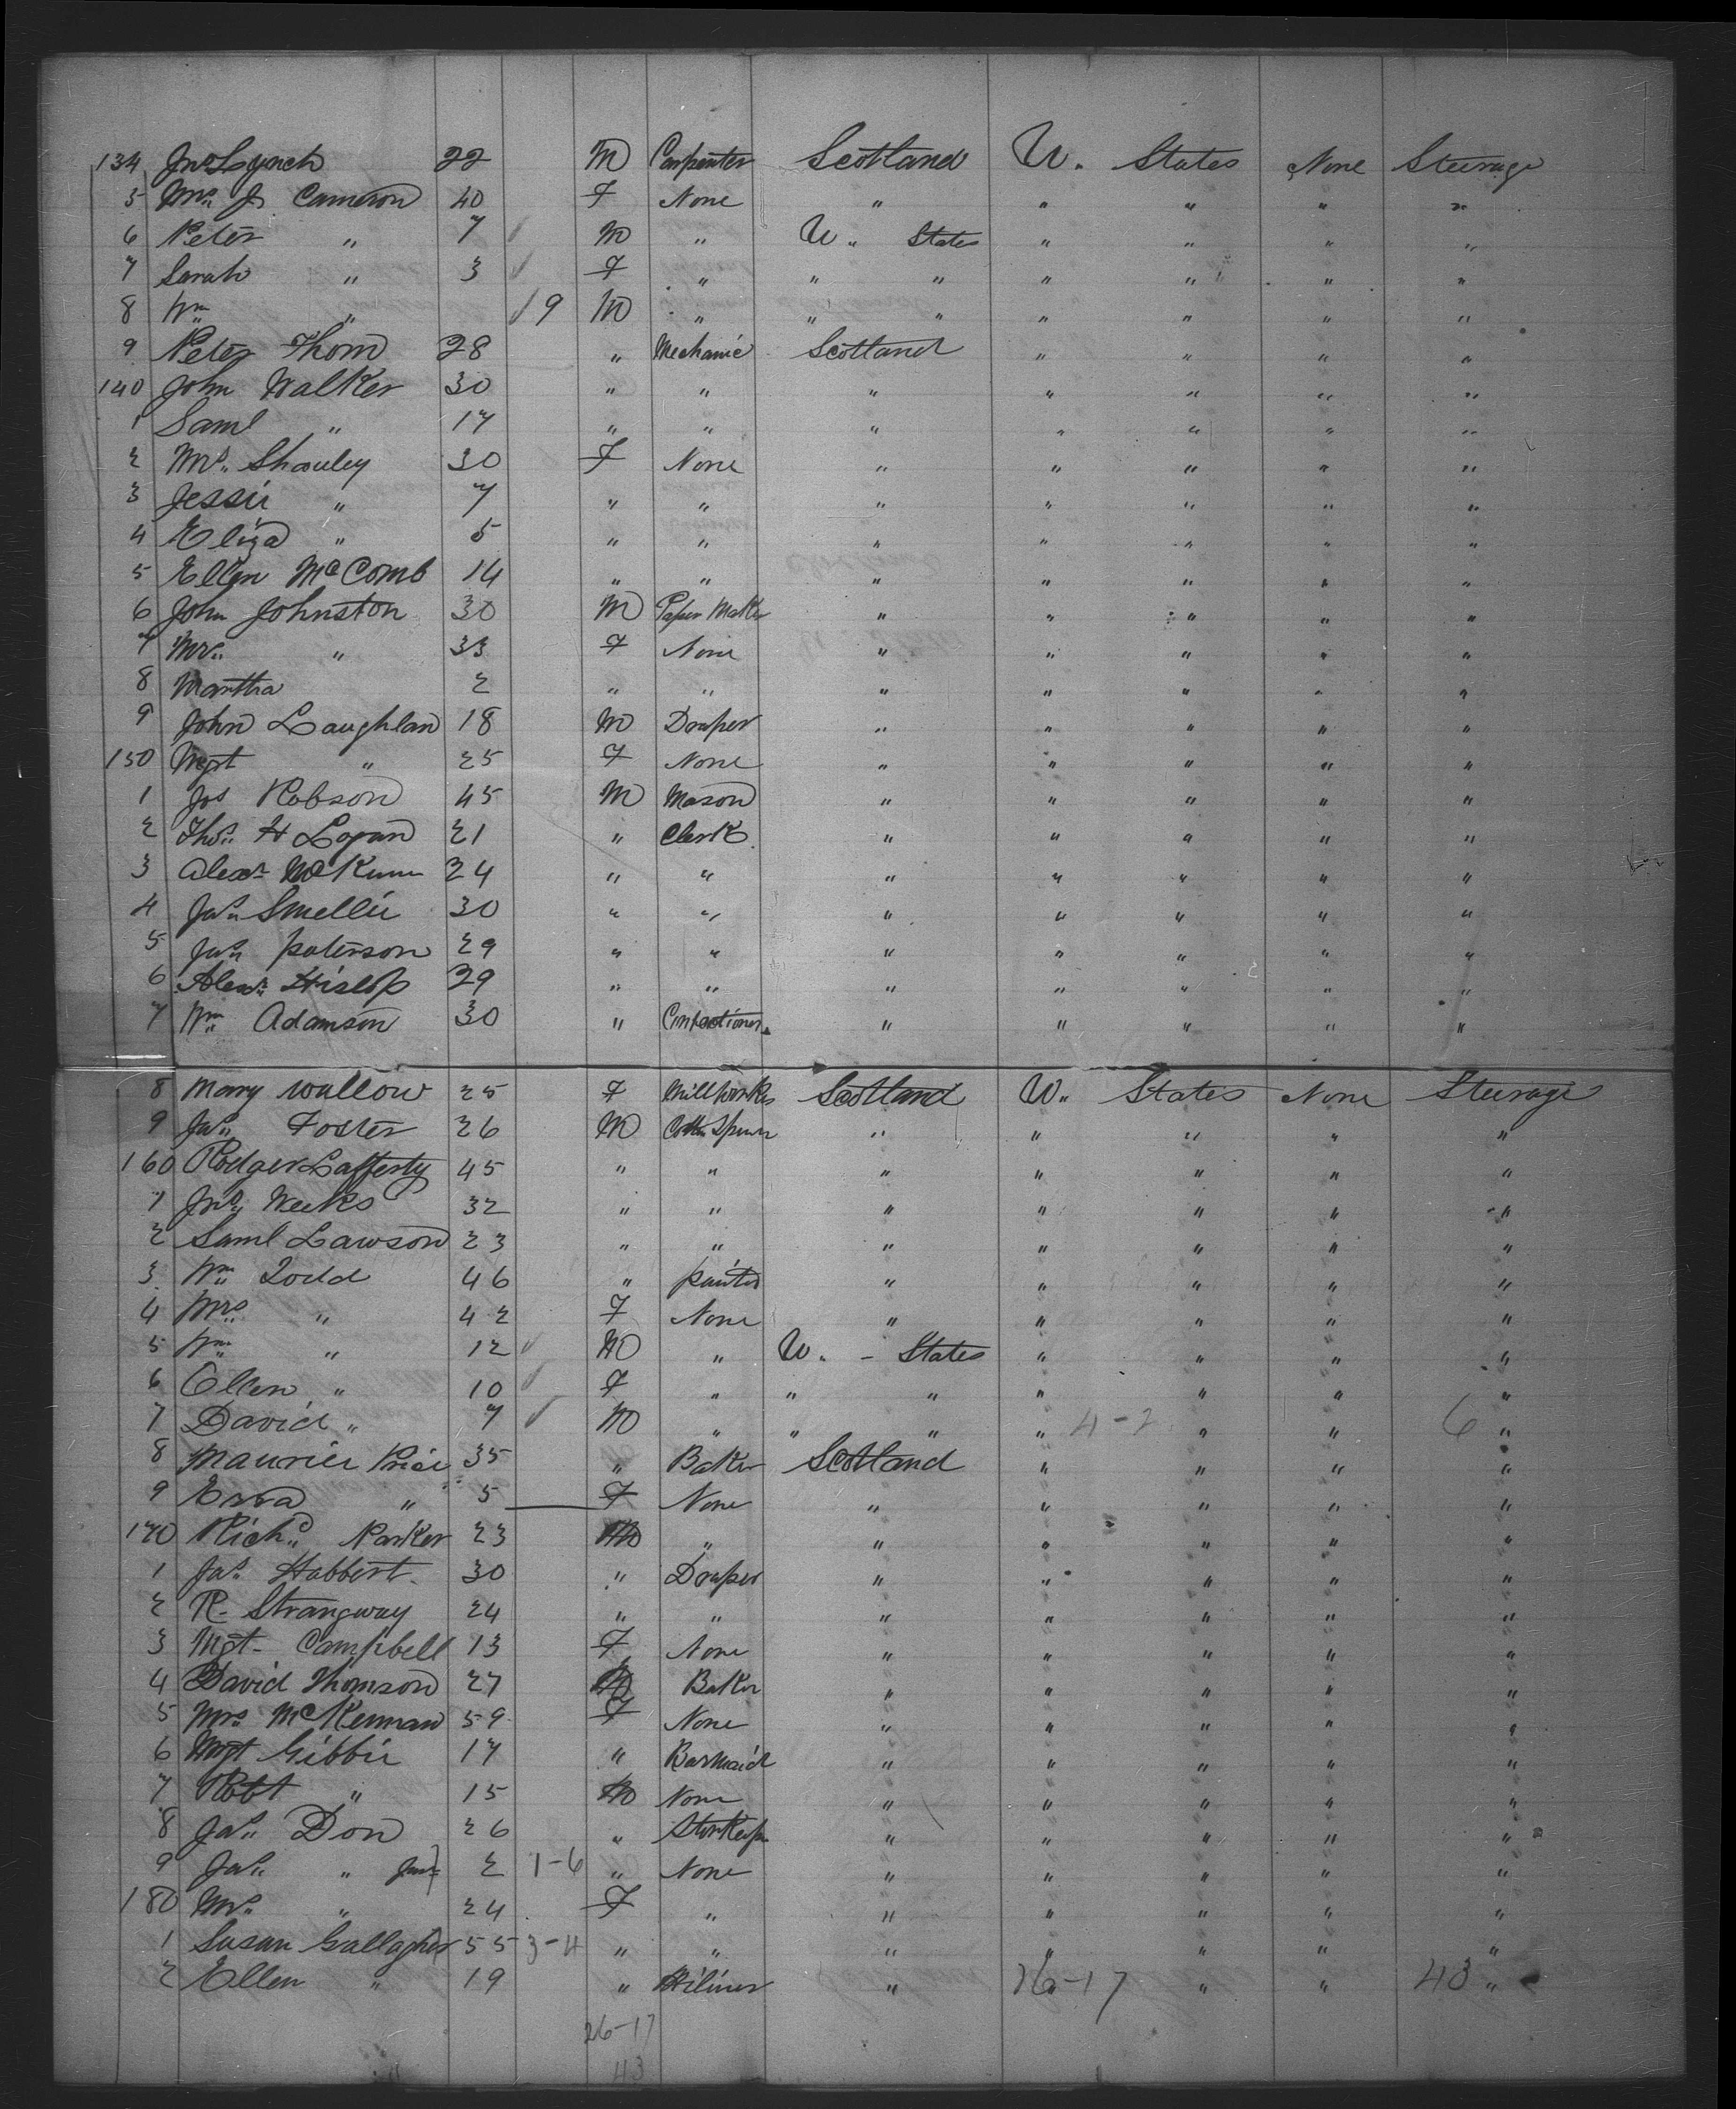 134 Jno Lynch 22 M Carpenter Scotland U. States None Steerage
5 Mrs. J. Cameron 40 F None " " " " "
6 Peter " 7 M " U. States " " " "
7 Sarah " 3 F " " " " " " "
8 Wm " 9 M " " " " " " "
9 Peter Thom 28 " Mechanic Scotland " " " "
140 John Walker 30 " " " " " " "
1 Saml " 17 " " " " " " "
2 Mrs. 30 F None " " " " "
3 Jessie " 7 " " " " " " "
4 Eliza " 5 " " " " " " "
5 Ellen McComb 14 " " " " " " "
6 John Johnston 30 M Paper Maker " " " " "
7 Mrs. " 33 F None " " " " "
8 Martha 2 " " " " " " "
9 John Laughlan 18 M Draper " " " " "
150 Mgt " 25 F None " " " " "
1 Jos Robson 45 M Mason " " " " "
2 Thos. H Logan 21 " Clerk " " " " "
3 Alexr. 24 " " " " " " "
4 Jas. Smellie 30 " " " " " " "
5 Jas. paterson 29 " " " " " " "
6 Alexr. Hislop 29 " " " " " " "
7 Wm Adamson 30 " Confectioner " " " " "
8 Mary 25 F Millworker Scotland U. States None Steerage
9 Jas. Foster 26 M " " " " "
160 Rodger Lafferty 45 " " " " " " "
1 Jno. Weeks 32 " " " " " " "
2 Saml Lawson 23 " " " " " " "
3 Wm Todd 46 " painter " " " " "
4 Mrs " 42 F None " " " " "
5 Wm " 12 M " U. - States " " " "
6 Ellen " 10 F " " " " " " "
7 David " 7 M " " " " 4-2 " " 6 "
8 Maurice Price 35 " Baker Scotland " " " "
9 " 5 F None " " " " "
170 Richd. Parker 23 M " " " " " "
1 Jas. Habbert. 30 " Draper " " " " "
2 R. Strangway 24 " " " " " " "
3 Mgt. Campbell 13 F None " " " " "
4 David Thomson 27 M Baker " " " " "
5 Mrs. McKennan 59 F None " " " " "
6 Mgt Gibbie 17 " Barmaid " " " " "
7 Robt " 15 M None " " " " "
8 Jas. Don 26 " Storkeepr " " " " "
9 Jas. " Junr 2 1-6 " None " " " " "
180 Mrs. " 24 F " " " " " "
1 Susan Gallagher 55 3-4 " " " " " " "
2 Ellen " 19 " " 26-17 " " 43 "
26-17
43